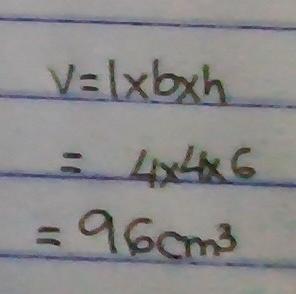 V=l×b×h
= 4×4×6
=96cm³